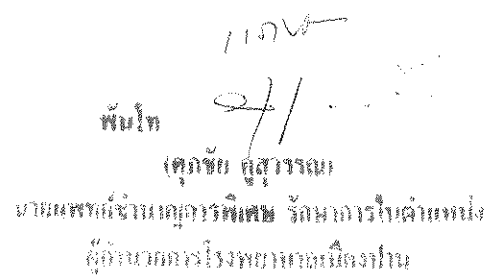 พันโท
(ศุภชัย คูสุวรรณ)
นายแพทย์ชำนาญการพิเศษ รักษาการในตำแหน่ง
ผู้อำนวยการโรงพยาบาลเมืองปาน